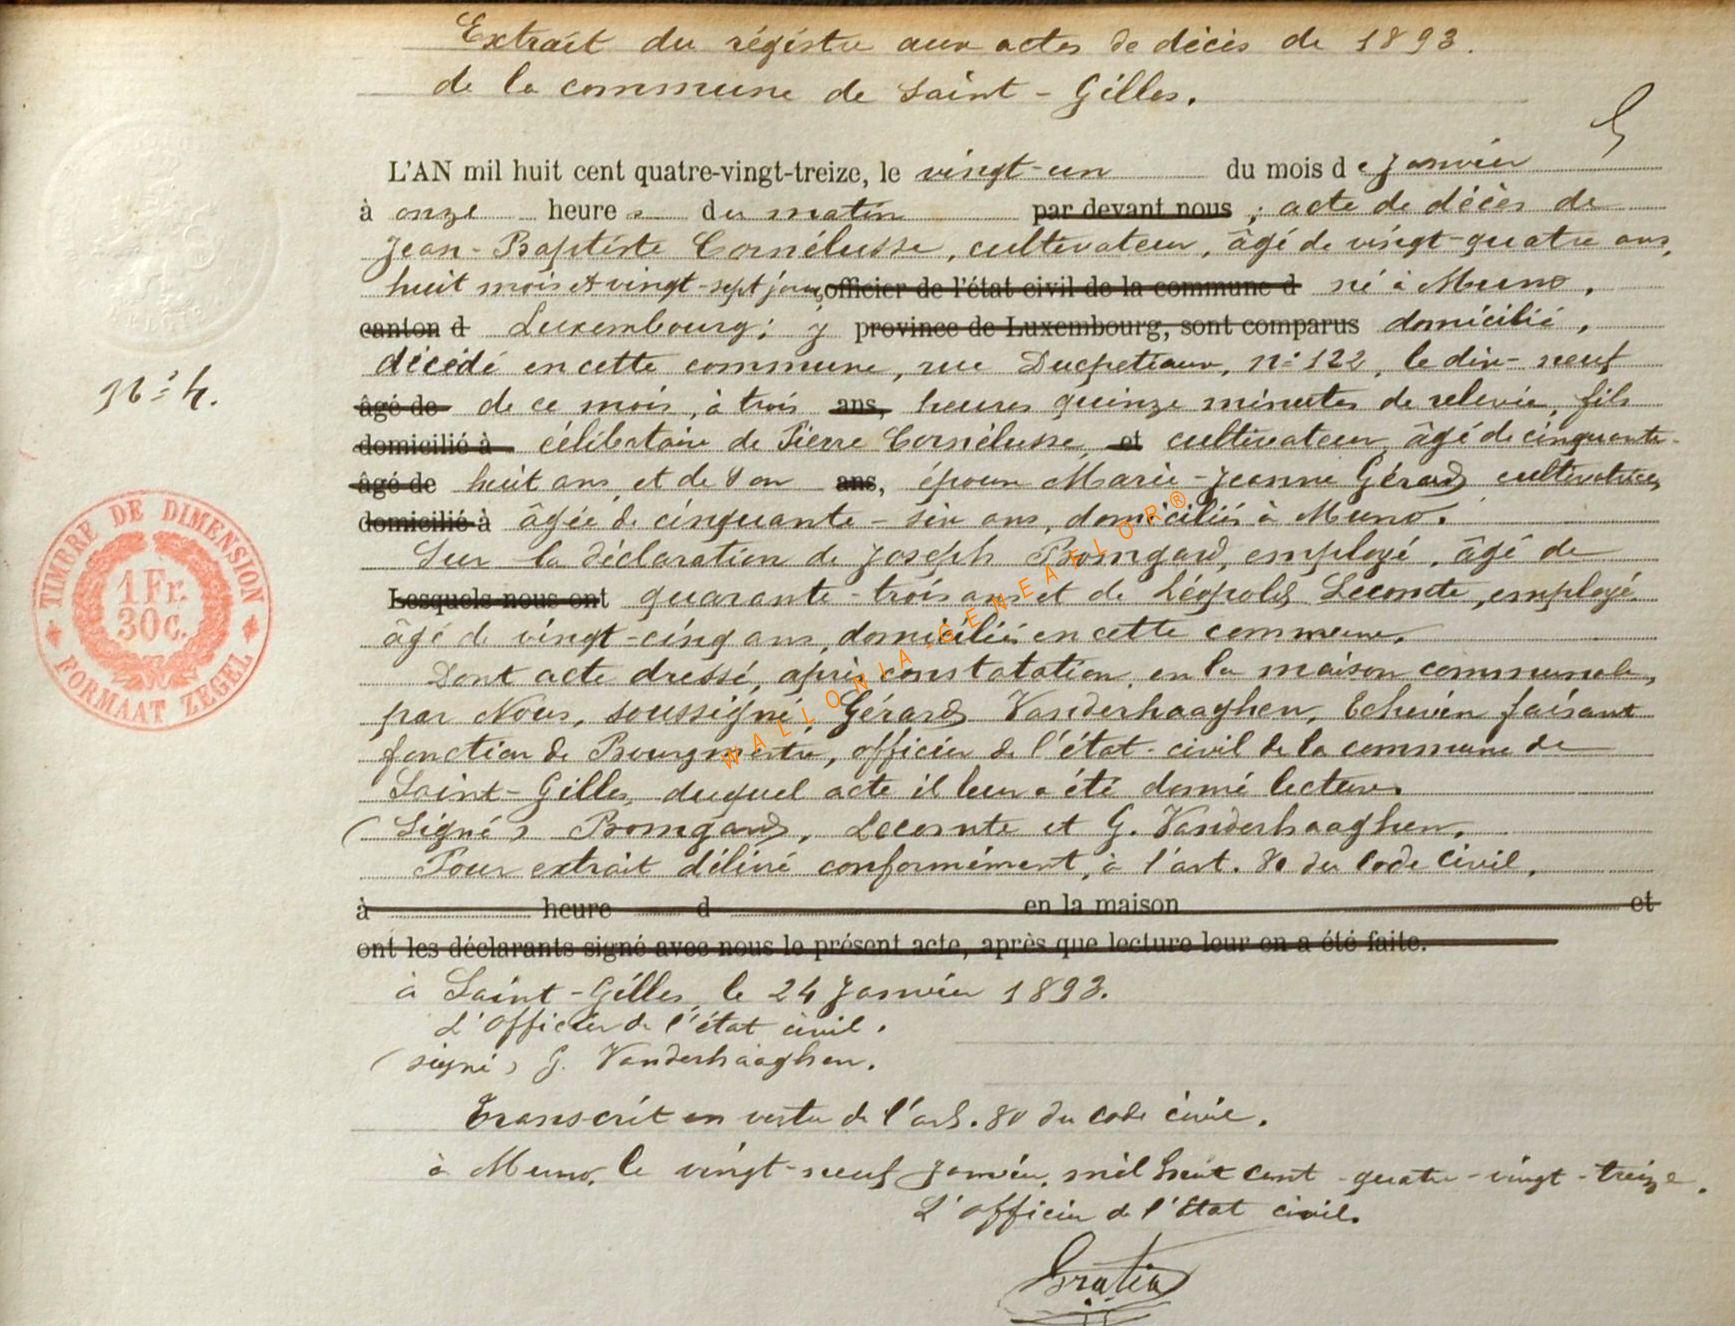 Extrait du régistre aux actes de décès de 1893.
de la commune de Saint-Gilles.
L'AN mil huit cent quatre-vingt-treize, le vingt-un du mois de Janvier
à onze heures du matin par devant nous ; acte de décès de
Jean-Baptiste Cornélusse, cultivateur, âgé de vingt-quatre ans,
huit mois et vingt-sept jours, officier de l'état civil de la commune d né à Muno,
canton d Luxembourg; y province de Luxembourg, sont comparus domicilié,
décédé en cette commune, rue Ducpetiaux, n° 122, le dix-neuf
N° 4.
âgé de de ce mois, à trois ans, heures quinze minutes de relevée, fils
domicilié à célibataire de Pierre Cornélusse, et cultivateur, âgé de cinquante-
âgé de huit ans, et de son ans, épouse Marie-Jeanne Gérard cultivatrice,
domicilié à âgée de cinquante-six ans, domiciliés à Muno.
Sur la déclaration de Joseph Bomgard, employé, âgé de
Lesquels nous ont quarante-trois ans et de Léopold Lecomte, employé
âgé de vingt-cinq ans, domiciliés en cette commune.
Dont acte dressé, après constatation, en la maison communale,
par Nous, soussigné, Gérard Vanderhaaghen, Echevin faisant
fonction de Bourgmestre, officier de l'état-civil de la commune de
Saint-Gilles, duquel acte il leur a été donné lecture.
(Signé) Bomgard, Lecomte et G. Vanderhaaghen.
Pour extrait délivré conformément, à l'art. 80 du Code Civil,
à heure d en la maison et
ont les déclarants signé avec nous le présent acte, après que lecture leur en a été faite.
à Saint-Gilles, le 24 Janvier 1893.
L'Officier de l'état civil.
(signé) G. Vanderhaaghen.
Transcrit en vertu de l'art. 80 du code civil.
à Muno, le vingt-neuf Janvier, mil huit cent-quatre-vingt-treize.
L'officier de l'Etat civil.
Gratia
TIMBRE DE DIMENSION
1 Fr.
30 c.
FORMAAT ZEGEL
WALLONIA-GENEAFLOR®